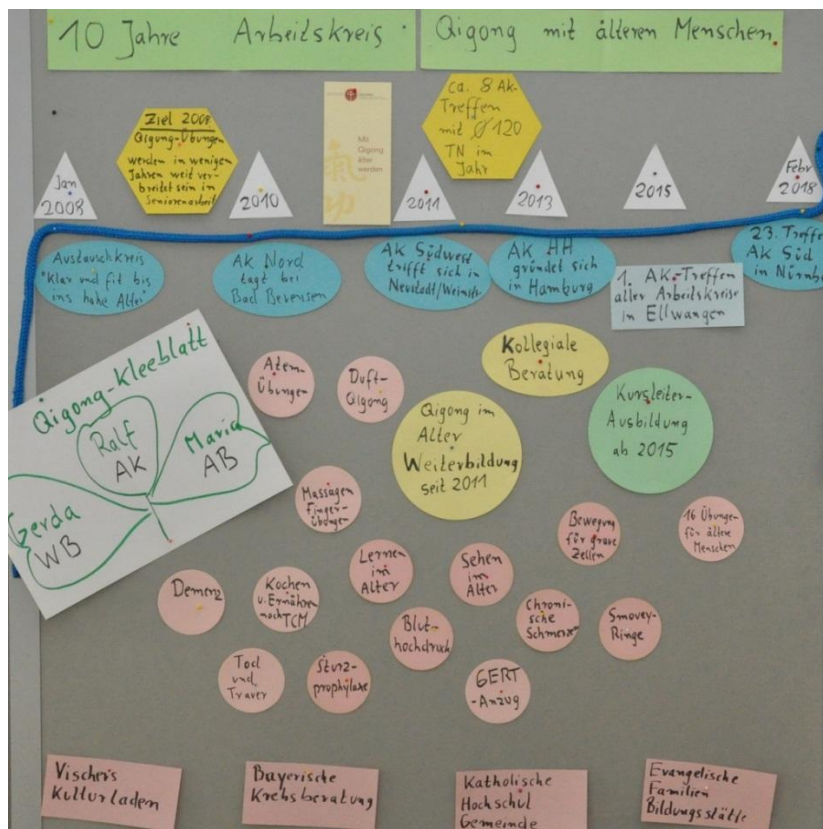 10 Jahre Arbeitskreis
Qigong mit älteren Menschen.
Jan
2008
Ziel 2008
Qigong-Übungen
werden in wenigen
Jahren weit ver-
breitet sein in
Seniorenarbeit
2010
Mit
Qigong
älter
werden
氣
功
2011
ca. 8 AK-
Treffen
mit Ø 120
TN im
Jahr
2013
2015
Febr
2018
Austauschkreis
"Klar und fit bis
ins hohe Alter"
AK Nord
tagt bei
Bad Bevensen
AK Südwest
trifft sich in
Neustadt/Weinstr.
AK HH
gründet sich
in Hamburg
1. AK-Treffen
aller Arbeitskreise
in Ellwangen
23. Treffe
AK Süd
in Nürnb
Qigong-Kleeblatt
Ralf
AK
Maria
AB
Gerda
WB
Atem-
Übungen
Duft-
Qigong
Kollegiale
Beratung
Qigong im
Alter
Weiterbildung
seit 2011
Kursleiter-
Ausbildung
ab 2015
Massagen
Finger-
übungen
Bewegung
für graue
Zellen
16 Übungen
für ältere
Menschen
Lernen
im
Alter
Sehen
im
Alter
Demenz
Kochen
u. Ernähren
nach TCM
Blut-
hochdruck
Chroni-
sche
Schmerz"
Smovey-
Ringe
Tod
und
Trauer
Sturz-
prophylaxe
GERT
-Anzug
Vischers
Kulturladen
Bayerische
Krebsberatung
Katholische
Hochschul
Gemeinde
Evangelische
Familien
Bildungsstätte